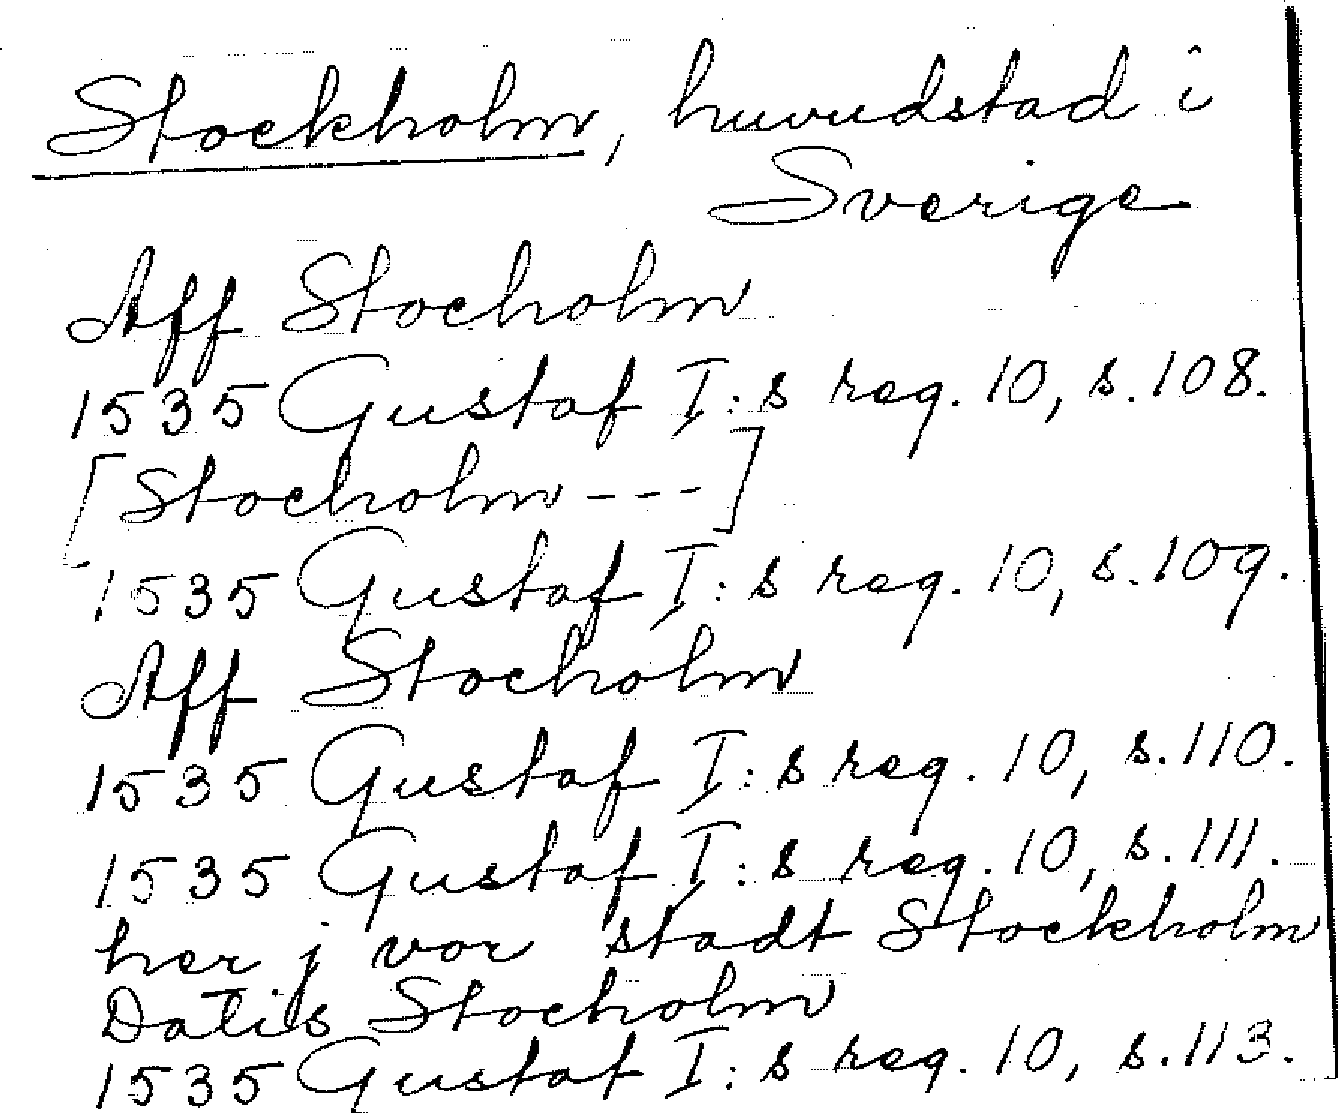 Stockholm, huvudstad i
Sverige
Aff Stocholm
1535 Gustaf I:s reg. 10, s. 108.
[Stocholm - - -]
1535 Gustaf I:s reg. 10, s. 109.
Aff Stocholm
1535 Gustaf I:s reg. 10, s. 110.
1535 Gustaf I:s reg. 10, s. 111.
her j vor stadt Stockholm
Datis Stocholm
1535 Gustaf I:s reg. 10, s. 113.